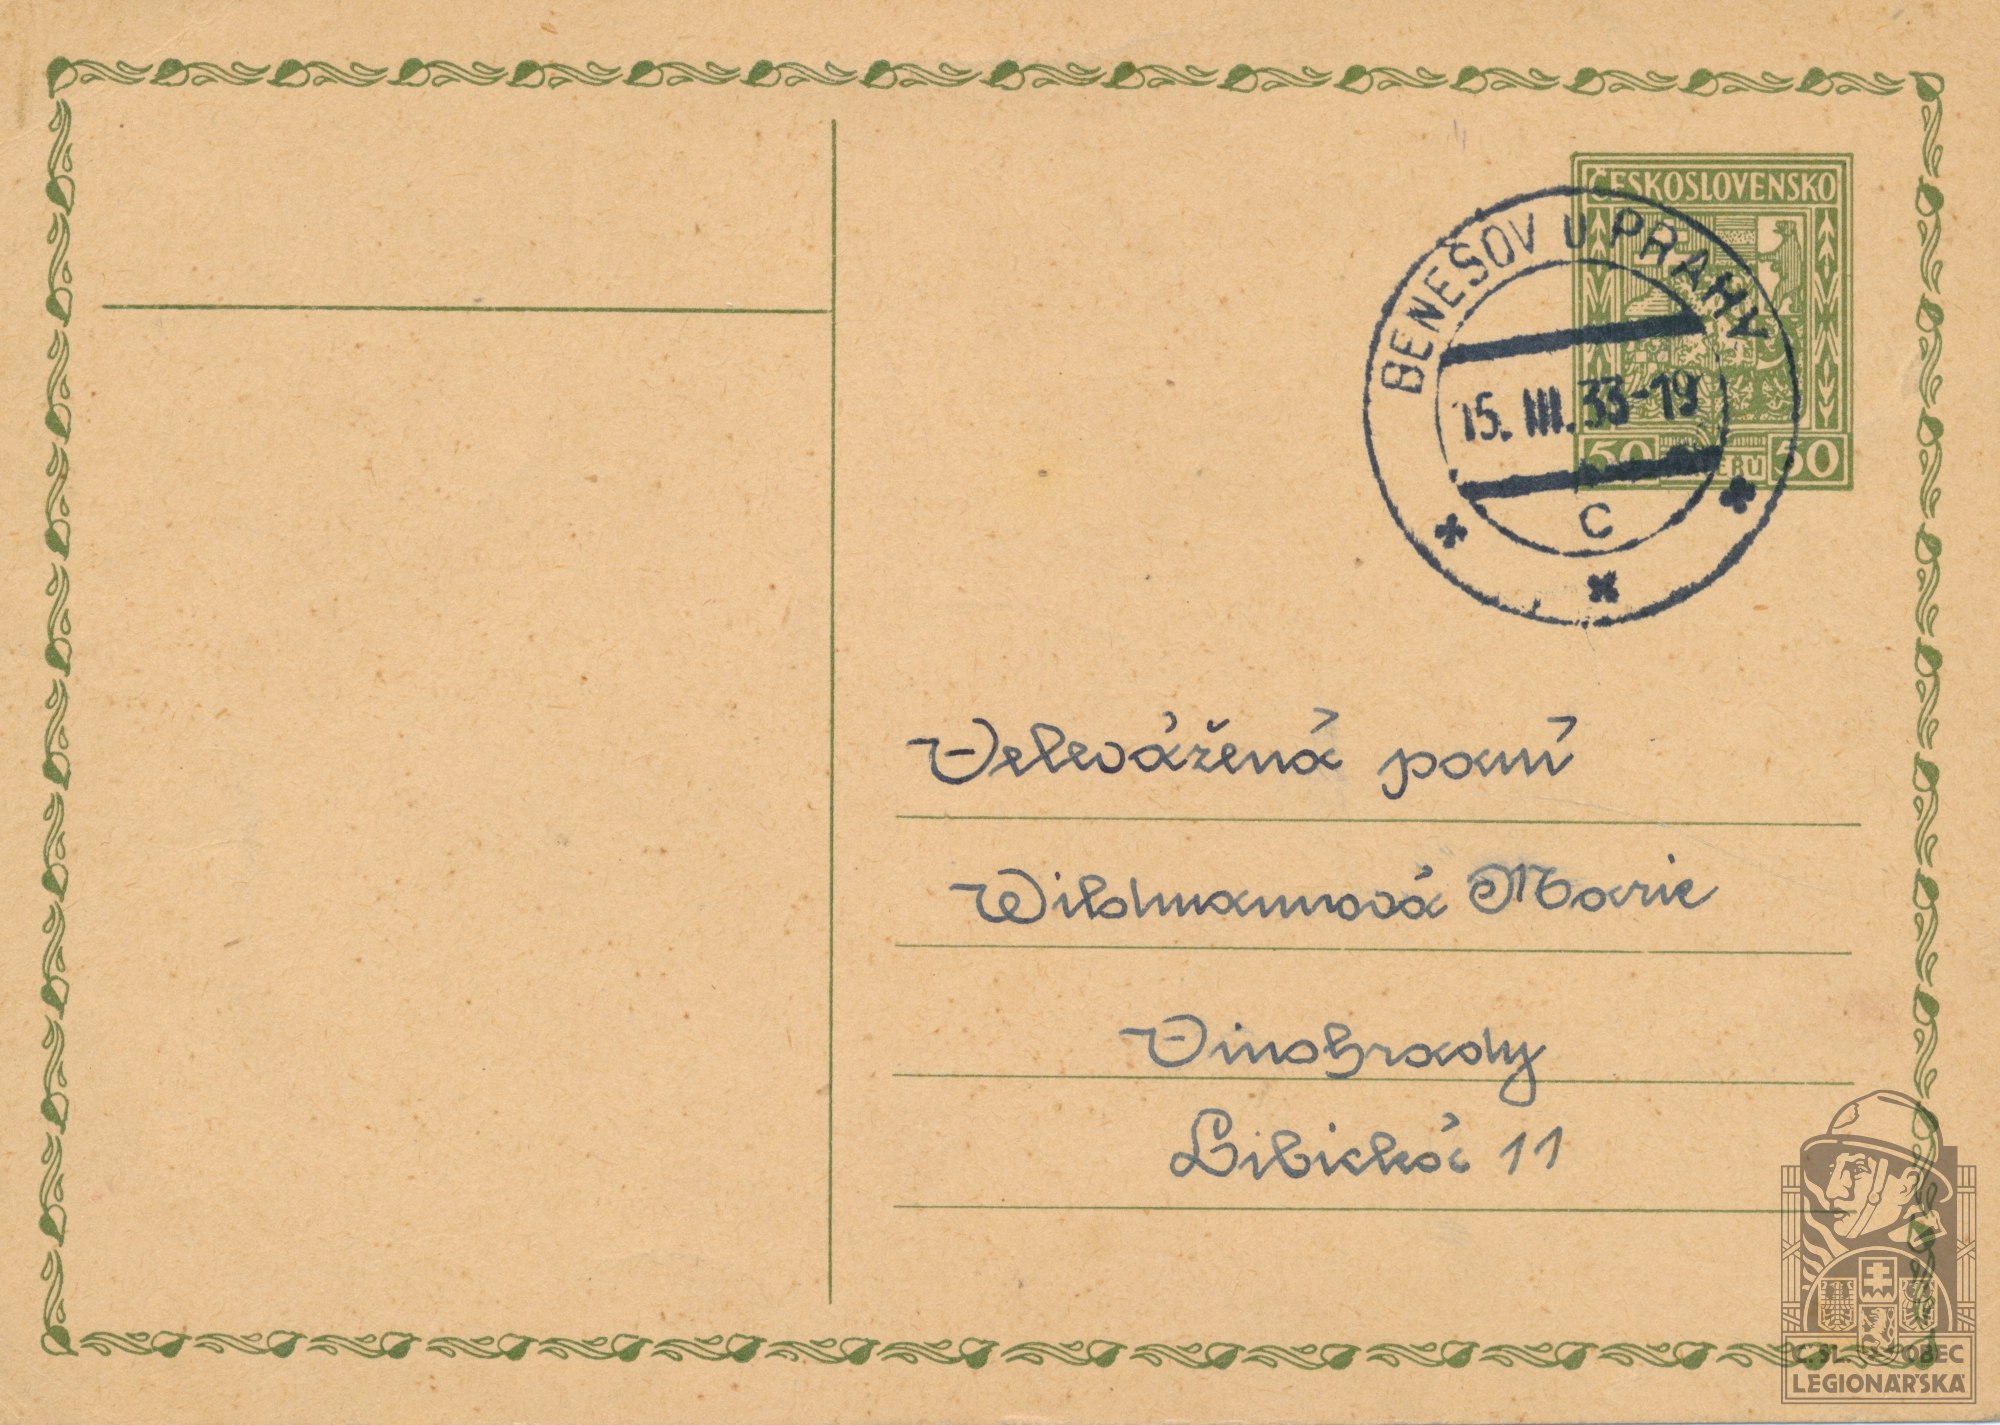 ČESKOSLOVENSKO
BENEŠOV U PRAHY
15. III. 33-19
50 50
C
Velevážená paní
Wildmannová Marie
Vinohrady
Libická 11
Č. SL. OBEC
LEGIONÁŘSKÁ